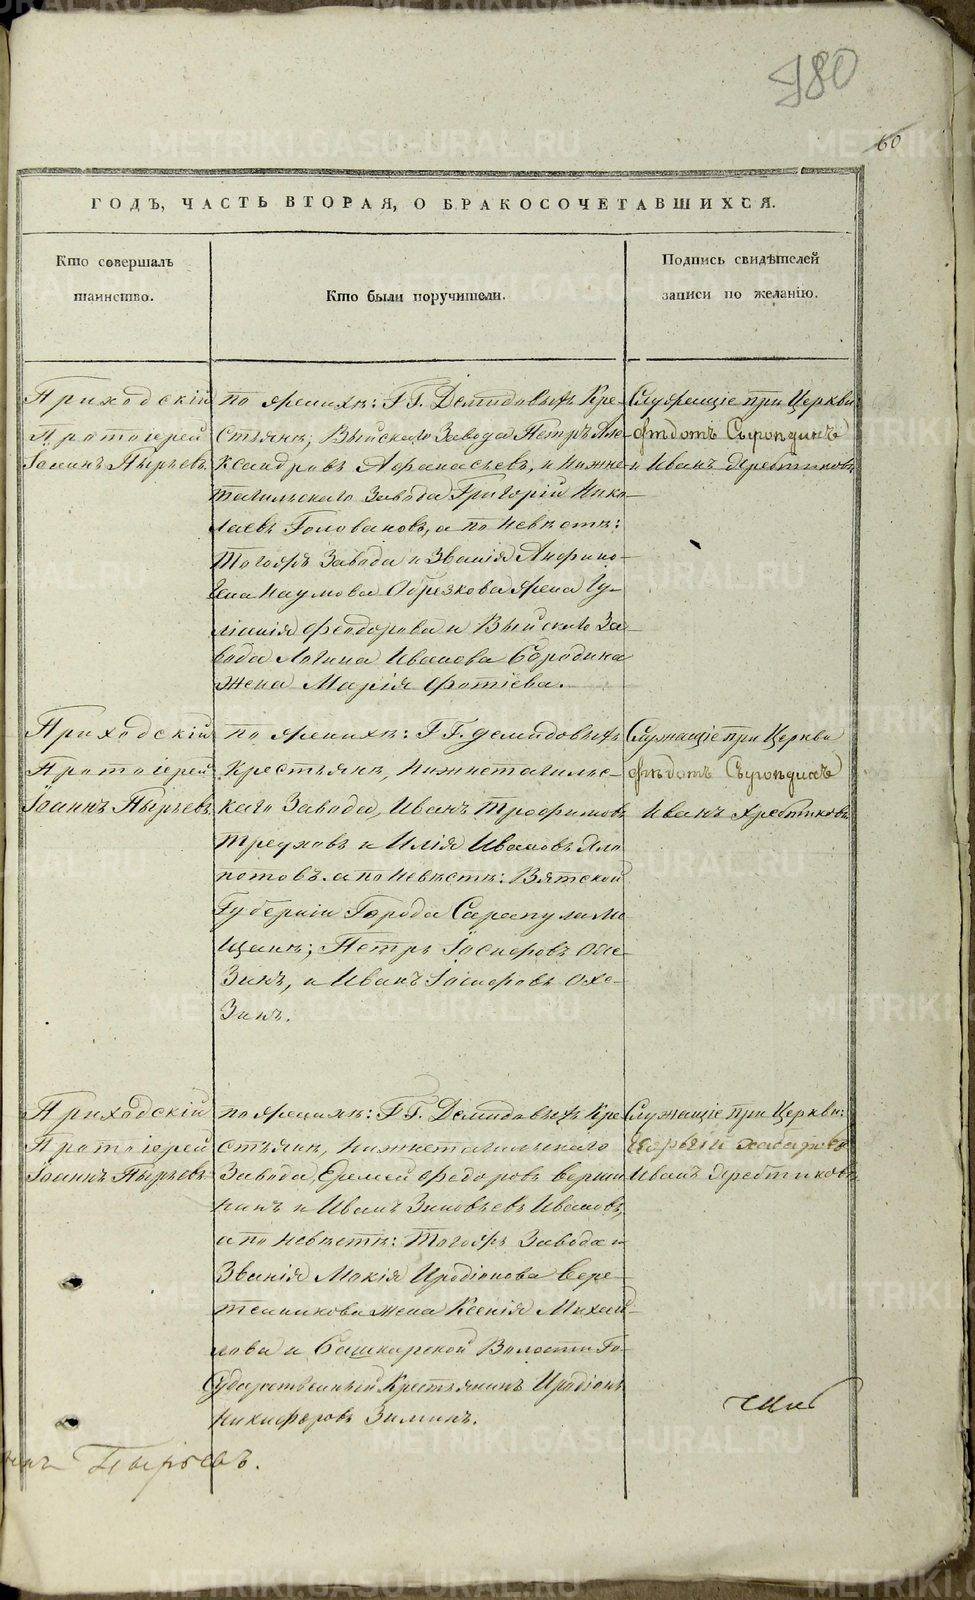 980
60
ГОДЪ, ЧАСТЬ ВТОРАЯ, О БРАКОСОЧЕТАВШИХСЯ.
Кто совершалъ
таинство.
Кто были поручители.
Подпись свидѣтелей
записи по желанію.
Приходскій
Протоіерей
Іоаннъ Пырьевъ
по женихѣ: Г.Г. Демидовыхъ Кре-
стьяне, Выйскаго Завода Петръ Але-
ксандровъ Афанасьевъ, и Нижне-
тагильскаго Завода Григорій Нико-
лаевъ Головановъ, а по невѣстѣ:
тогожъ Завода и Званія Анфино-
гена Наумова Обрезкова жена Іу-
ліанія Феодорова и Выйскаго За-
вода Логина Иванова Бородина
жена Марія Фотіева.
Служащіе при Церкви:
Федотъ
и Иванъ Хребтиковъ
Приходскій
Протоіерей
Іоаннъ Пырьевъ
по женихѣ: Г.Г. Демидовыхъ
Крестьяне, Нижнетагильс-
каго Завода, Иванъ Трофимовъ
и Илія Ивановъ Хло-
потовъ. а по невѣстѣ: Вятской
Губерніи Города Сарапула Мѣ-
щане; Петръ Іосифовъ Оже-
и Иванъ Іосифовъ
Служащіе при Церкви
Федотъ
Иванъ Хребтиковъ
Приходскій
Протоіерей
Іоаннъ Пырьевъ
по женихѣ: Г.Г. Демидовыхъ Кре-
стьяне, Нижнетагильскаго
Завода, Еремей Федоровъ Верши-
нинъ и Иванъ Зиновьевъ Ивановъ,
а по невѣстѣ: тогожъ Завода и
Званія Мокія Иродіонова Вере-
тенникова жена Ксенія Михай-
лова и Башкарской Волости Го-
сударственный Крестьянинъ Иродіонъ
Никифоровъ Зиминъ.
Служащіе при Церкви:
Иванъ Хребтиковъ
Пырьевъ.
METRIKI.GASO-URAL.RU